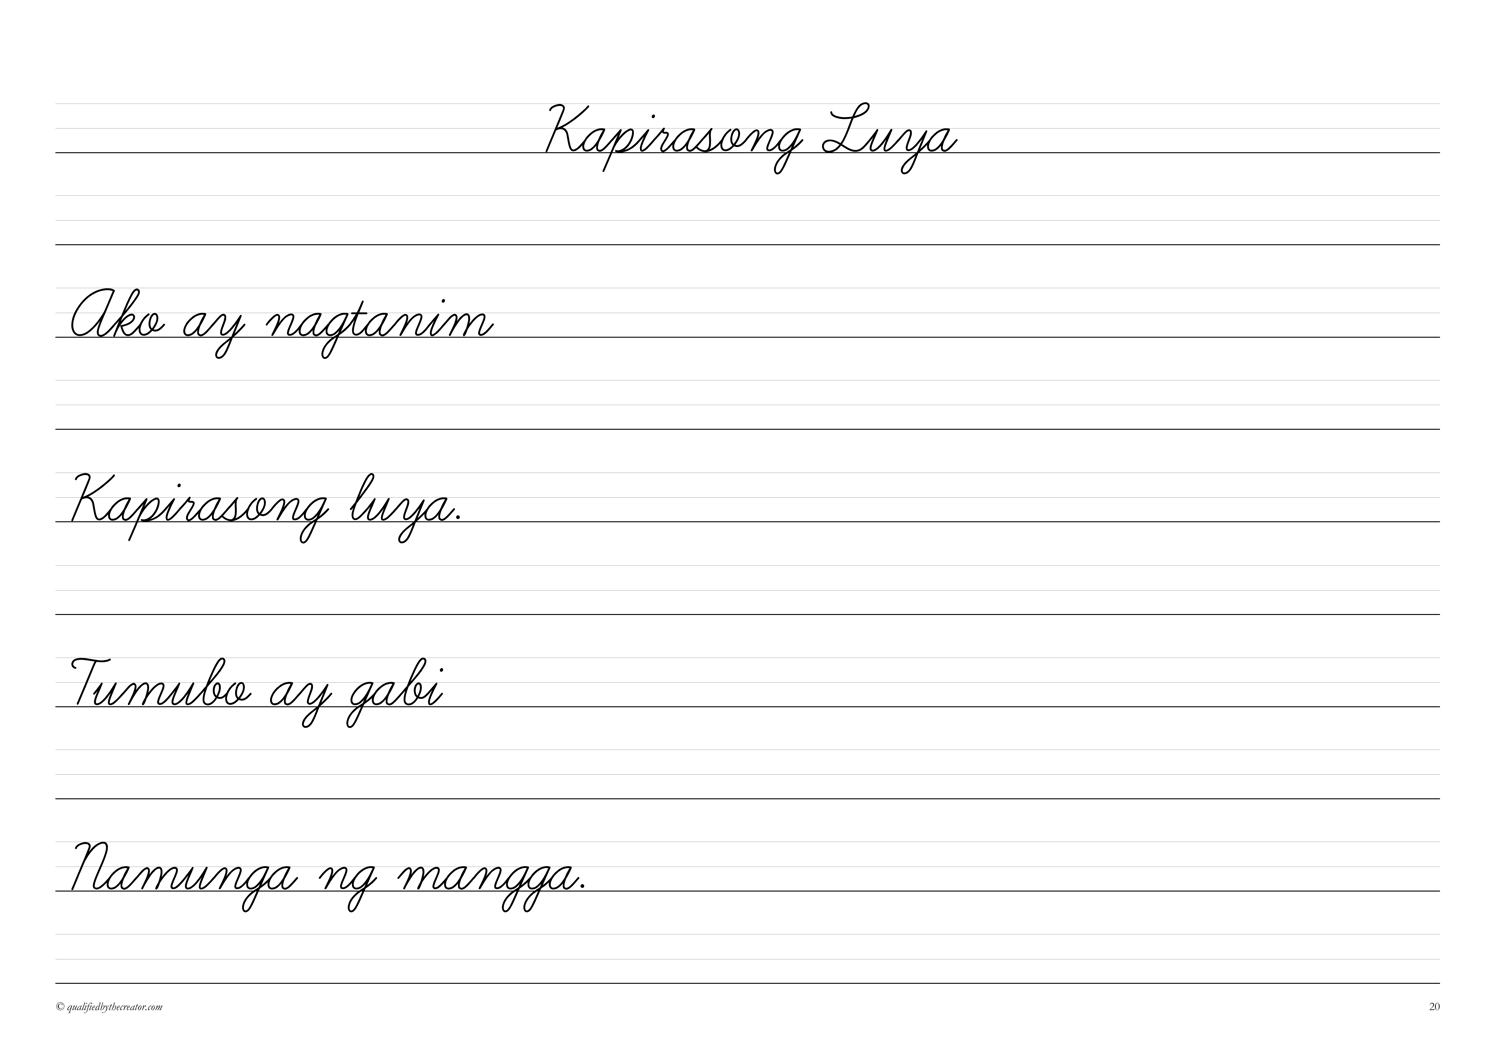 Kapirasong Luya
Ako ay nagtanim
Kapirasong luya.
Tumubo ay gabi
Namunga ng mangga.
© qualifiedbythecreator.com
20